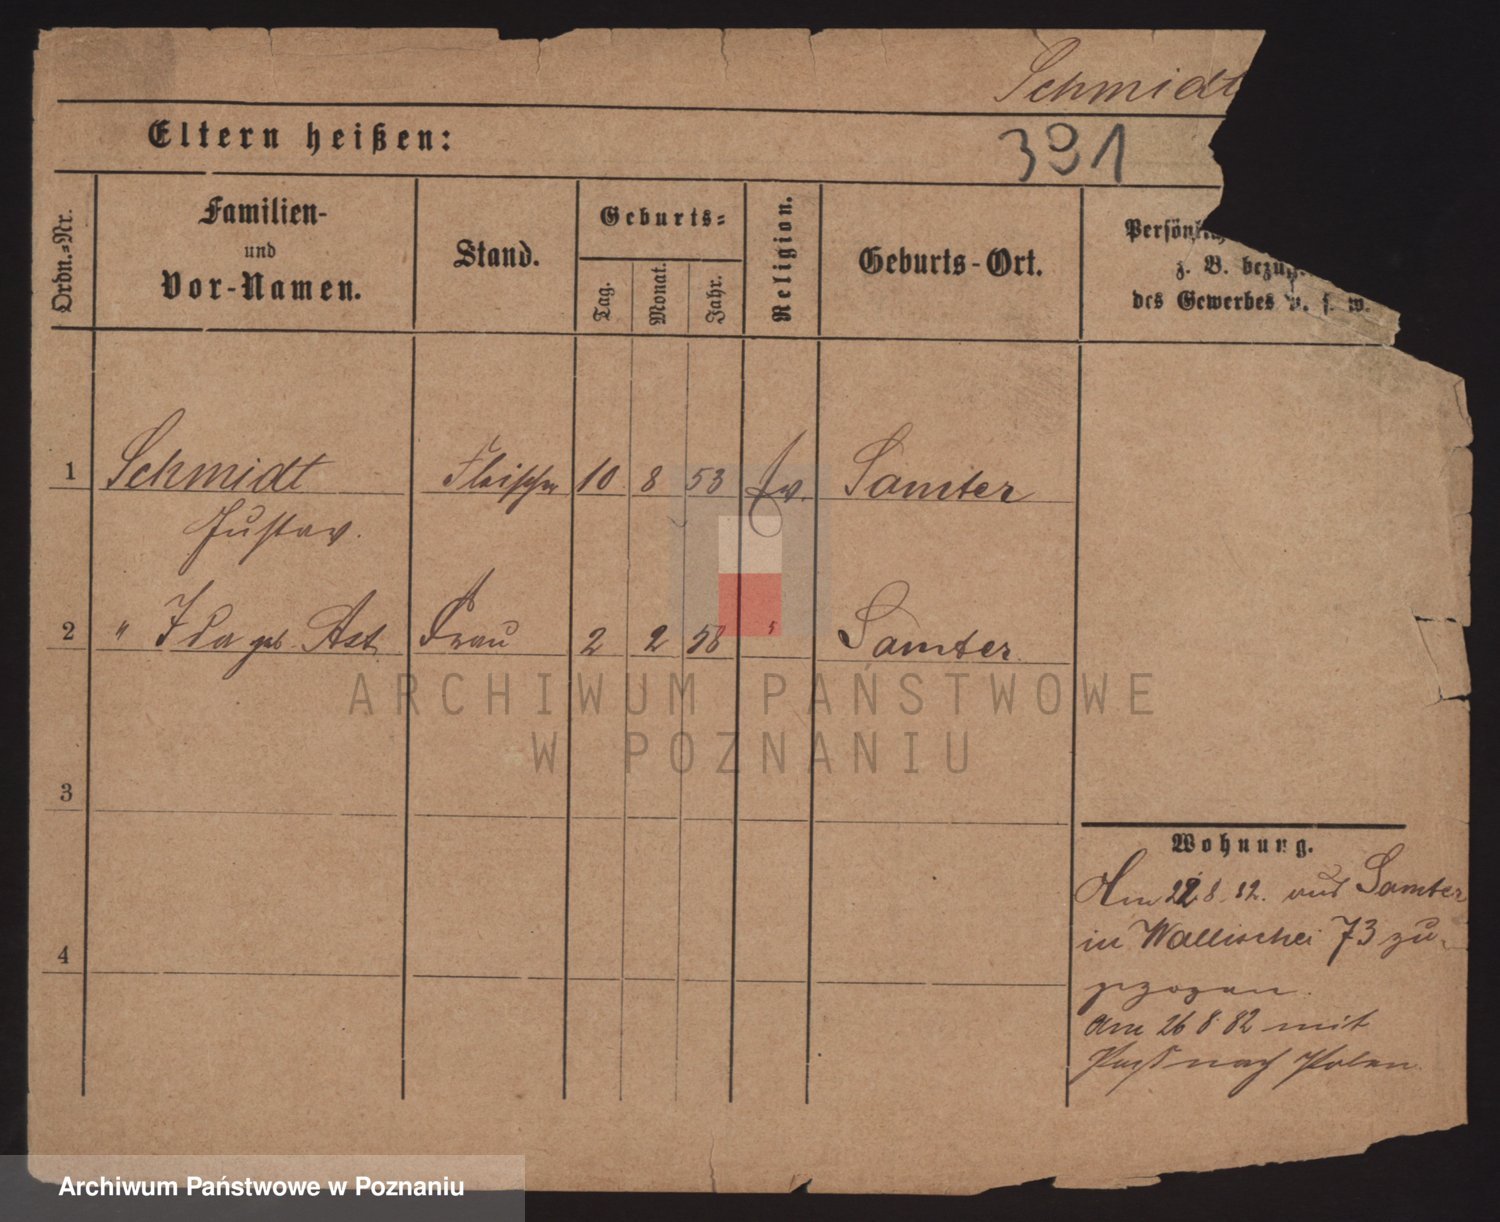 Schmidt
Eltern heißen:
391
Ordn.-Nr.
Familien-
und
Vor-Namen.
Stand.
Geburts-
Tag.
Monat.
Jahr.
Religion.
Geburts-Ort.
Persönlich
z. B. bezügl.
des Gewerbes u. s. w.
1 Schmidt Fleischer 10 8 53 ev. Samter
Gustav.
2 " Ida geb. Ast Frau 2 2 58 " Samter
3
4
ARCHIWUM PAŃSTWOWE
W POZNANIU
Wohnung.
Am 22.8.82. aus Samter
in Wallischei 73 zu-
gezogen.
Am 26 8 82 mit
Paß nach Polen
Archiwum Państwowe w Poznaniu